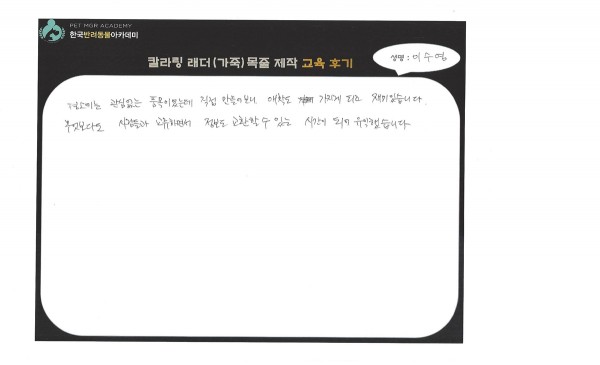 PET MGR ACADEMY
한국반려동물아카데미
칼라링 래더(가죽)목줄 제작 교육 후기
성명 : 이수영
평소에는 관심없는 품목이었는데 직접 만들어보니 애착도 가지게 되고 재미있습니다.
무엇보다도 사람들과 교류하면서 정보도 교환할 수 있는 시간이 되어 유익했습니다.